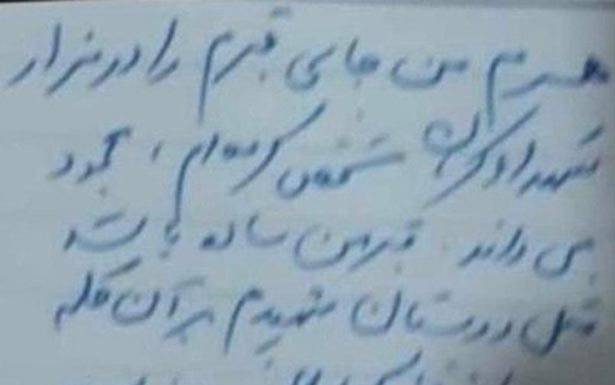 همسرم من جای قبرم را در مزار
شهدا کرمان مشخص کرده‌ام، محمود
می داند. قبر من ساده باشد
مثل دوستان شهیدم بر آن کلمه